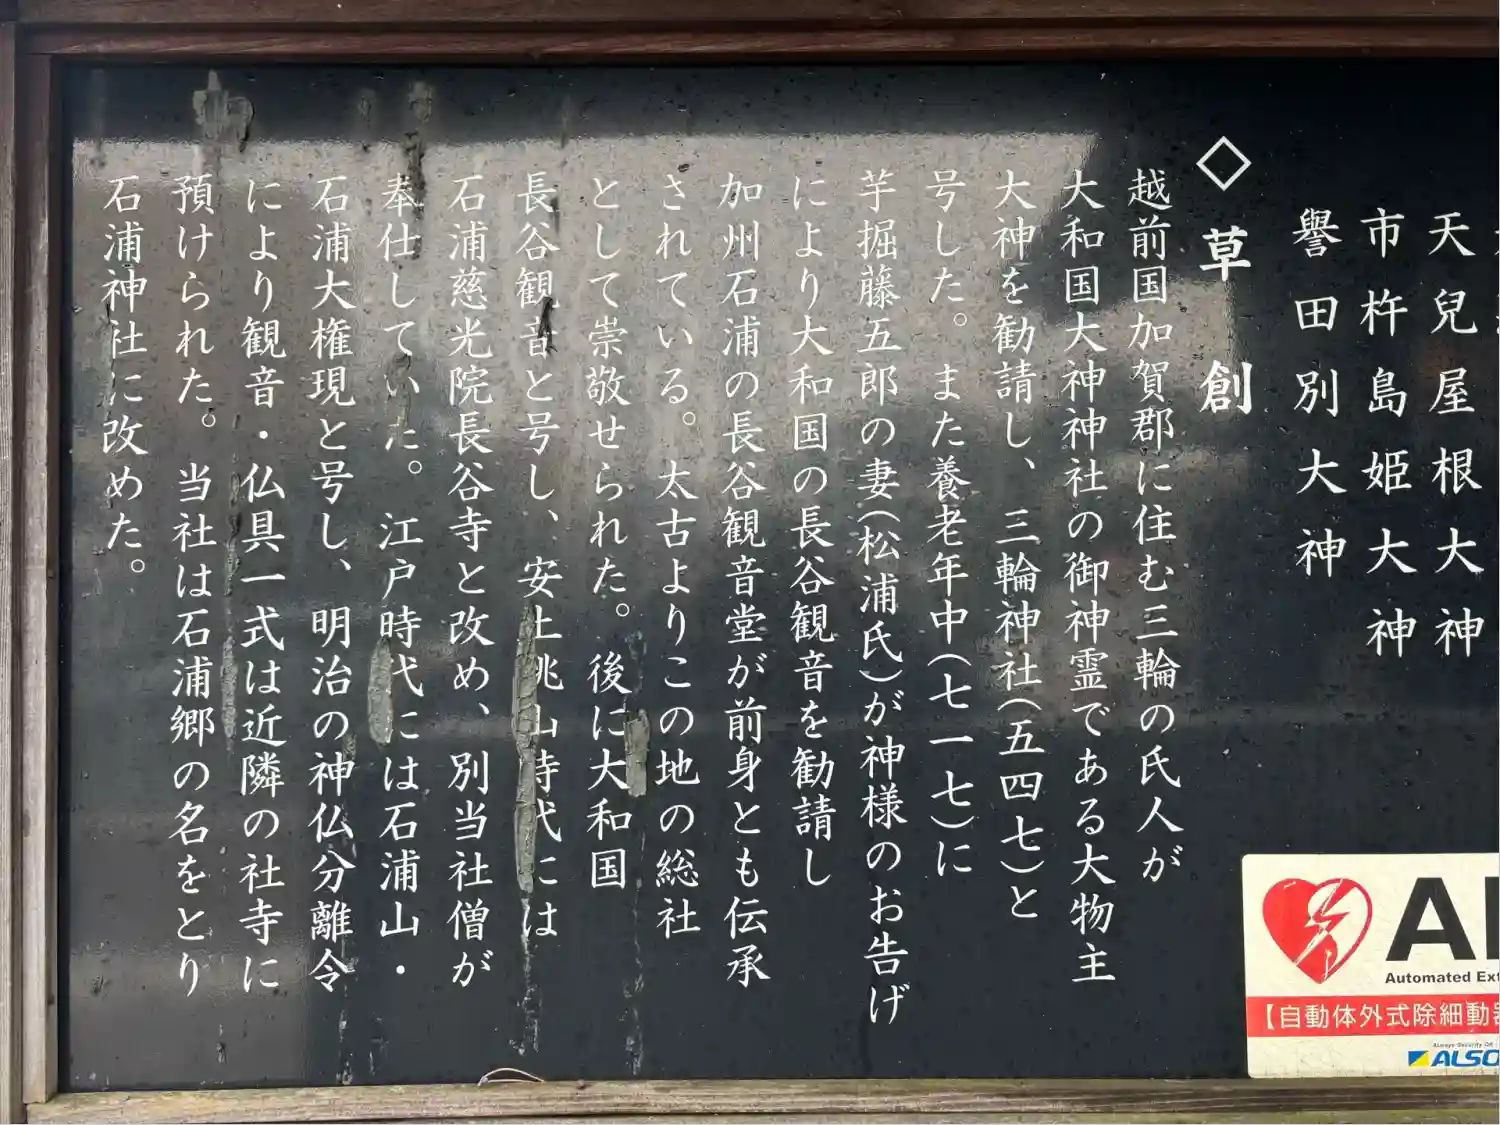 天兒屋根大神
市杵島姫大神
譽田別大神
◇草創
越前国加賀郡に住む三輪の氏人が
大和国大神神社の御神霊である大物主
大神を勧請し、三輪神社(五四七)と
号した。また養老年中(七一七)に
芋掘藤五郎の妻(松浦氏)が神様のお告げ
により大和国の長谷観音を勧請し
加州石浦の長谷観音堂が前身とも伝承
されている。太古よりこの地の総社
として崇敬せられた。後に大和国
長谷観音と号し、安土桃山時代には
石浦慈光院長谷寺と改め、別当社僧が
奉仕していた。江戸時代には石浦山・
石浦大権現と号し、明治の神仏分離令
により観音・仏具一式は近隣の社寺に
預けられた。当社は石浦郷の名をとり
石浦神社に改めた。
Automated
【自動体外式除細動
Always Security OK
ALSO